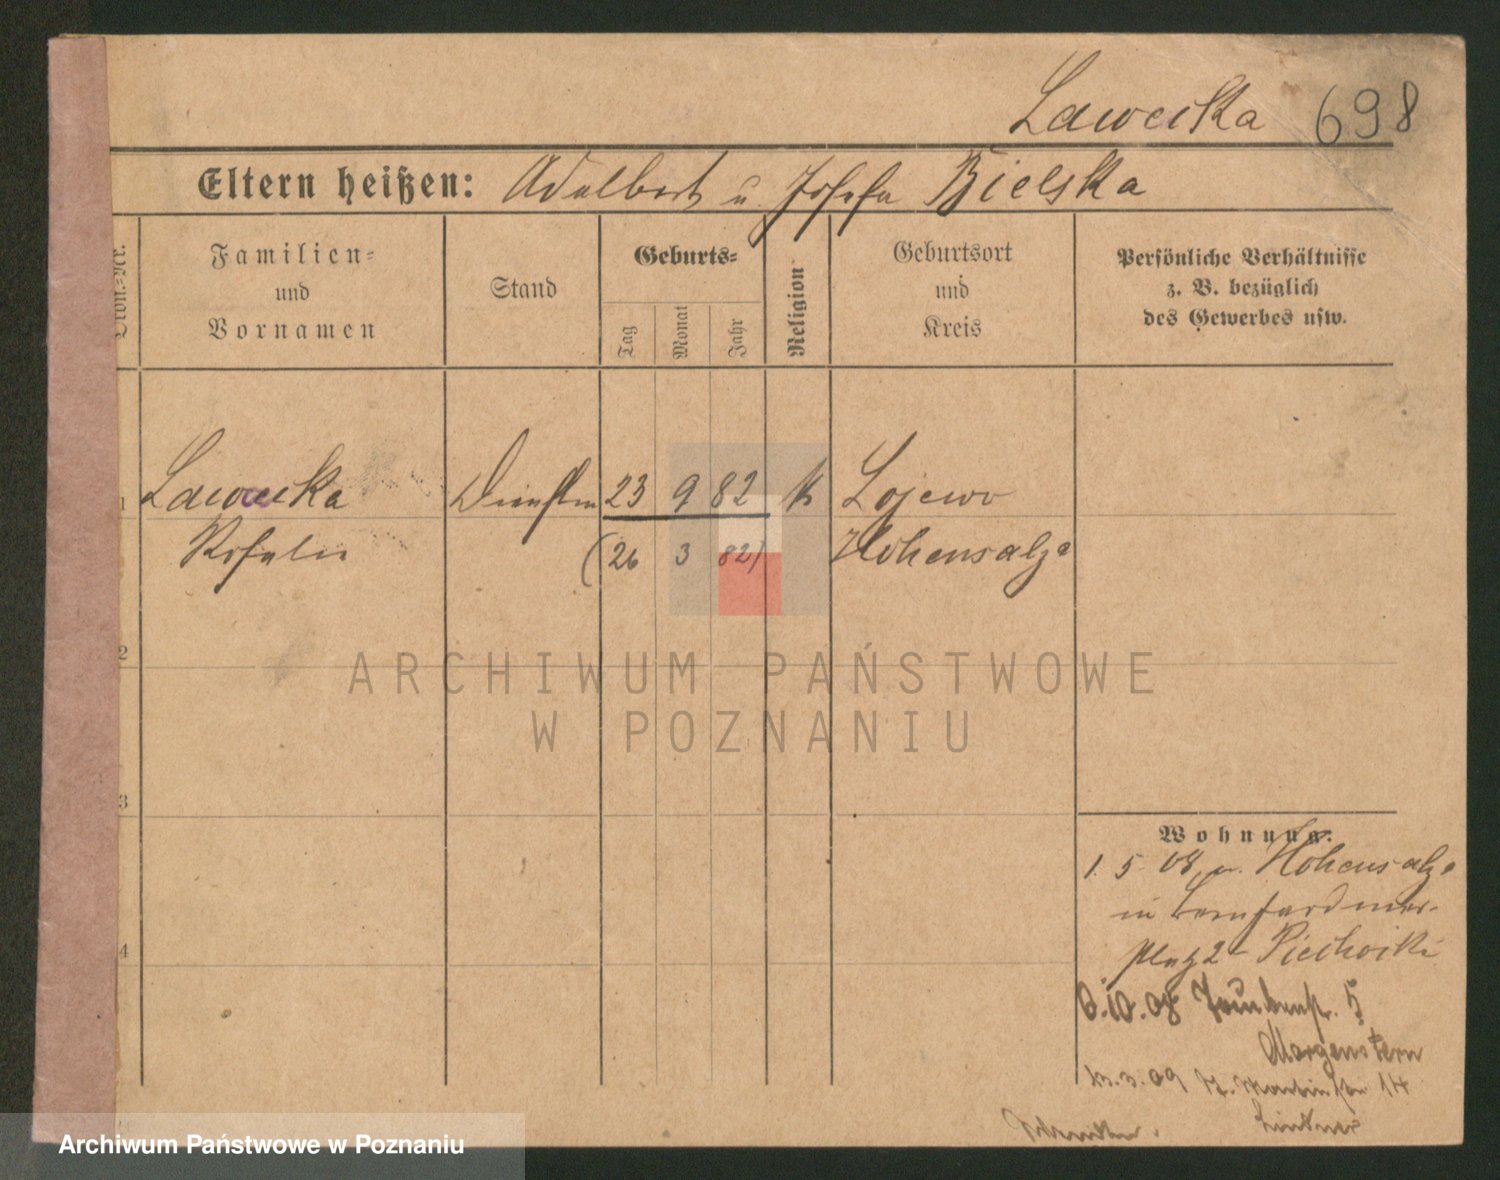 Lawecka 698
Eltern heißen: Adalbert u Josefa Bielska
Ordn.-Nr.
Familien-
und
Vornamen
Stand
Geburts-
Tag
Monat
Jahr
Religion
Geburtsort
und
Kreis
Persönliche Verhältnisse
z. B. bezüglich
des Gewerbes usw.
1 Lawecka Dienstm 23 9 82 k Lojewo
Rosalie (26 3 82) Hohensalza
2
3
4
ARCHIWUM PAŃSTWOWE
W POZNANIU
Wohnung:
1. 5 08 v. Hohensalza
in Bernhardiner-
platz 2 Piechocki
6.10.08 Taubenstr. 5
Morgenstern
13.3.09 St. Martinstr 14
Lintner
Archiwum Państwowe w Poznaniu